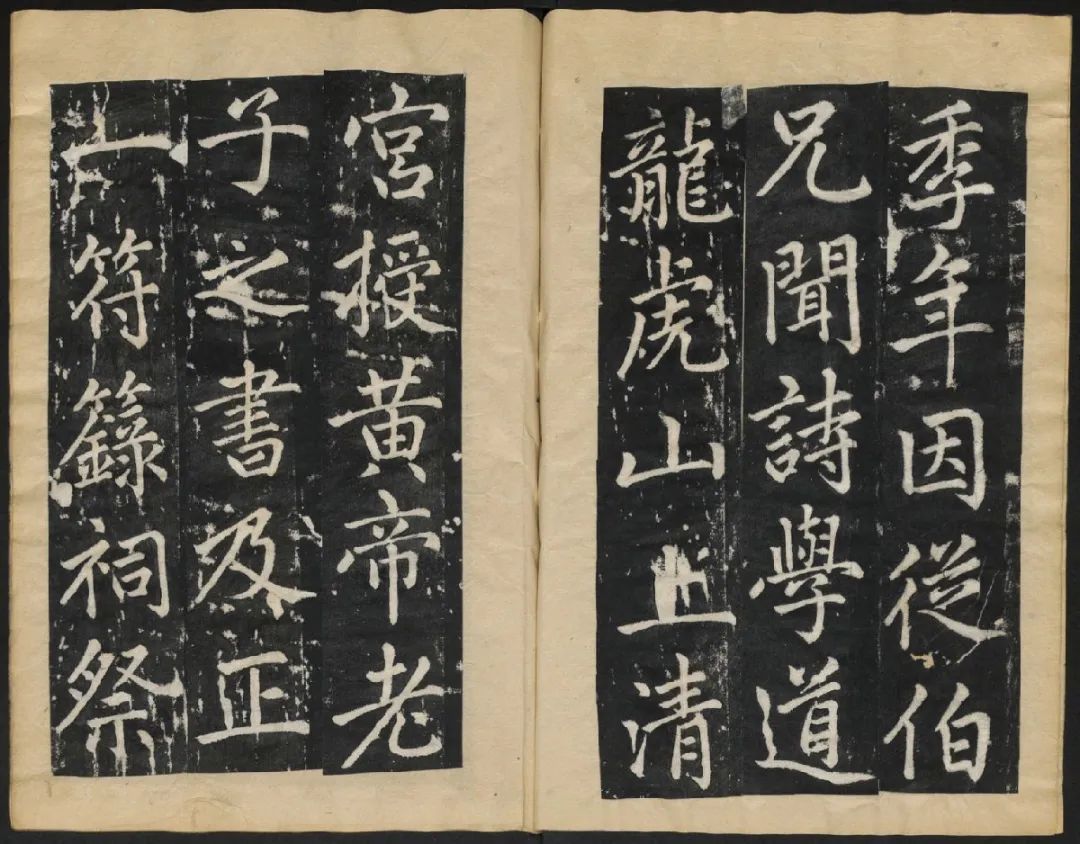 季年因從伯
兄聞詩學道
龍虎山上清
宮授黃帝老
子之書及正
一符籙祠祭